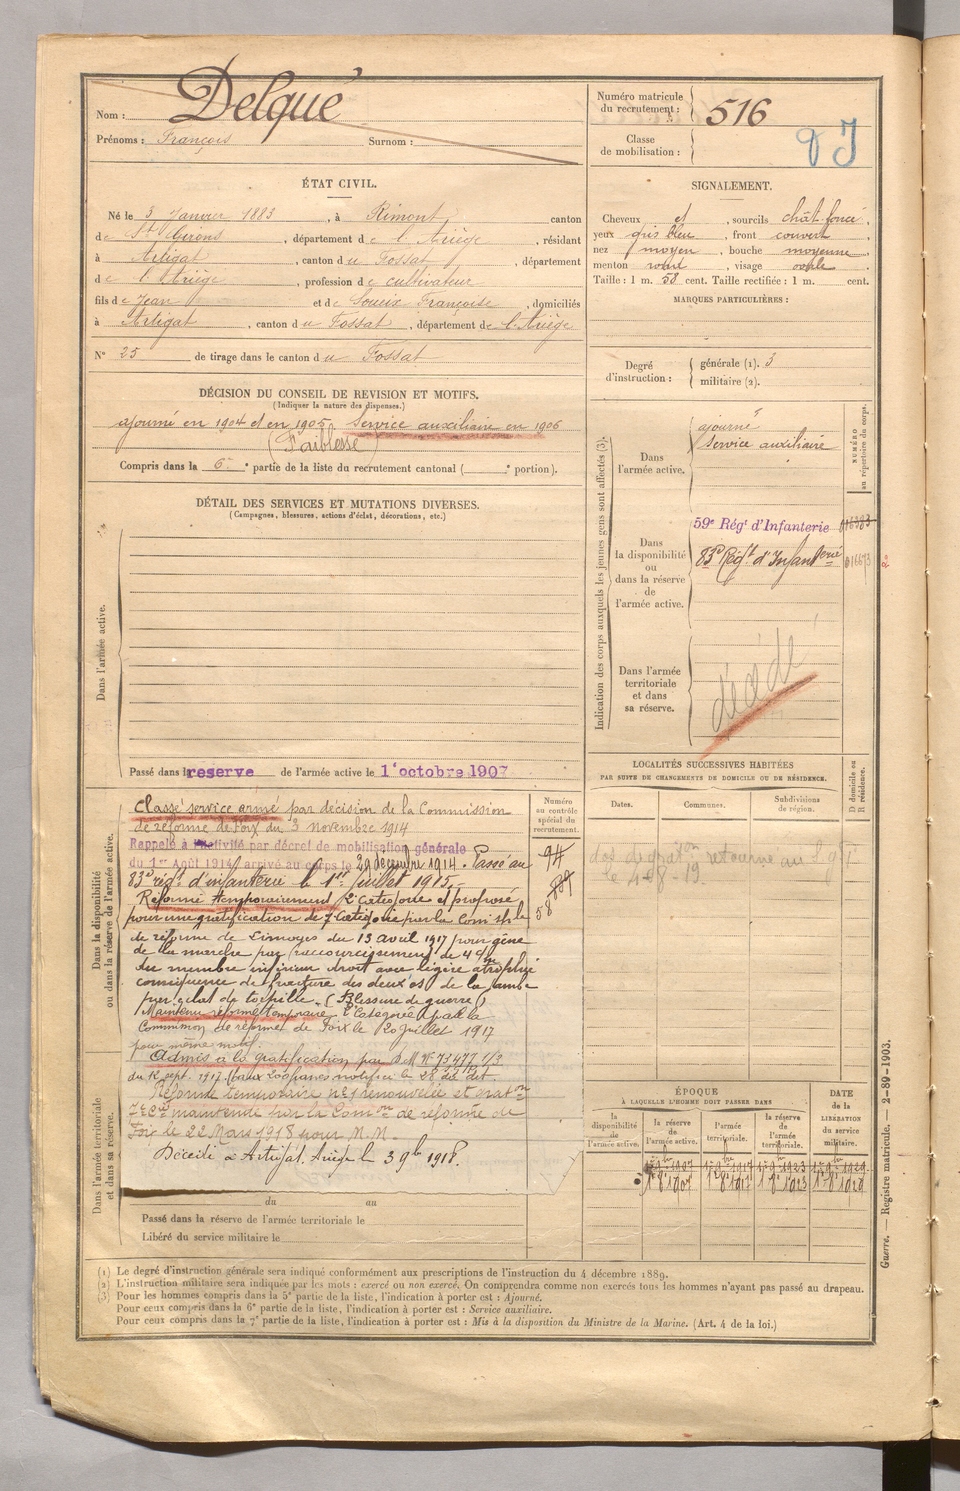 Nom : Delqué
Prénoms : François Surnom :
Numéro matricule du recrutement : 516
Classe de mobilisation :
ÉTAT CIVIL.
Né le 3 Janvier 1883, à Rimont, canton
de St Girons, département de l'Ariège, résidant
à Artigat, canton du Fossat, département
de l'Ariège, profession de cultivateur
fils de Jean et de Soueix Françoise, domiciliés
à Artigat, canton du Fossat, département de l'Ariège
N° 25 de tirage dans le canton du Fossat
SIGNALEMENT.
Cheveux et, sourcils chât. foncé,
yeux gris bleu, front couvert
nez moyen, bouche moyenne
menton rond, visage ovale.
Taille : 1 m. 58 cent. Taille rectifiée : 1 m. cent.
MARQUES PARTICULIÈRES :
Degré d'instruction :
générale (1). 3
militaire (2).
DÉCISION DU CONSEIL DE REVISION ET MOTIFS.
(Indiquer la nature des dispenses.)
ajourné en 1904 et en 1905 Service auxiliaire en 1906
(Faiblesse)
Compris dans la 6e partie de la liste du recrutement cantonal ( e portion).
DÉTAIL DES SERVICES ET MUTATIONS DIVERSES.
(Campagnes, blessures, actions d'éclat, décorations, etc.)
Dans l'armée active.
Passé dans la reserve de l'armée active le 1er octobre 1907
Indication des corps auxquels les jeunes gens sont affectés (3).
NUMÉRO au répertoire du corps.
Dans l'armée active.
ajourné
Service auxiliaire
Dans la disponibilité ou dans la réserve de l'armée active.
59e Régt d'Infanterie 016383
83e Régt d'Infanterie 016673
Dans l'armée territoriale et dans sa réserve.
décédé
LOCALITÉS SUCCESSIVES HABITÉES
PAR SUITE DE CHANGEMENTS DE DOMICILE OU DE RÉSIDENCE.
D domicile ou R résidence.
Dates. Communes. Subdivisions de région.
Dans la disponibilité ou dans la réserve de l'armée active.
Numéro au contrôle spécial du recrutement.
Classé service armé par décision de la Commission
de réforme de Foix du 3 novembre 1914
Rappelé à l'activité par décret de mobilisation générale
du 1er Août 1914 arrivé au corps le 29 décembre 1914. Passé au
83e régt d'infanterie le 1er Juillet 1915.
Réformé temporairement 2e Catégorie et proposé
pour une gratification de 7e Catégorie par la Comon sple
de réforme de Limoges du 13 avril 1917 pour gêne
de la marche par raccourcissement de 4 c/m
du membre inférieur droit avec légère atrophie
conséquence de fracture des deux os de la jambe
par éclat de torpille. (Blessure de guerre)
Maintenu réformé temporaire 1e Catégorie par la
Commission de réforme de Foix le 20 juillet 1917
pour même motif.
Admis à la gratification par D.M. N° 73477 1/3
du 12 sept. 1917. (taux 200 francs notifiée le 28 dud. dit.
Réforme temporaire n° 1 renouvelée et graton
7e Cie maintenue par la Comon de réforme de
Foix le 22 Mars 1918 pour M.M.
Décédé à Artigat, Ariège le 3 9bre 1918.
94
889
58
Dans l'armée territoriale et dans sa réserve.
du au
Passé dans la réserve de l'armée territoriale le
Libéré du service militaire le
ÉPOQUE
À LAQUELLE L'HOMME DOIT PASSER DANS
la disponibilité de l'armée active.
la réserve de l'armée active.
l'armée territoriale.
la réserve de l'armée territoriale.
DATE de la LIBÉRATION du service militaire.
(1) Le degré d'instruction générale sera indiqué conformément aux prescriptions de l'instruction du 4 décembre 1889.
(2) L'instruction militaire sera indiquée par les mots : exercé ou non exercé. On comprendra comme non exercés tous les hommes n'ayant pas passé au drapeau.
(3) Pour les hommes compris dans la 5e partie de la liste, l'indication à porter est : Ajourné.
Pour ceux compris dans la 6e partie de la liste, l'indication à porter est : Service auxiliaire.
Pour ceux compris dans la 7e partie de la liste, l'indication à porter est : Mis à la disposition du Ministre de la Marine. (Art. 4 de la loi.)
Guerre. — Registre matricule. — 2-89-1903.